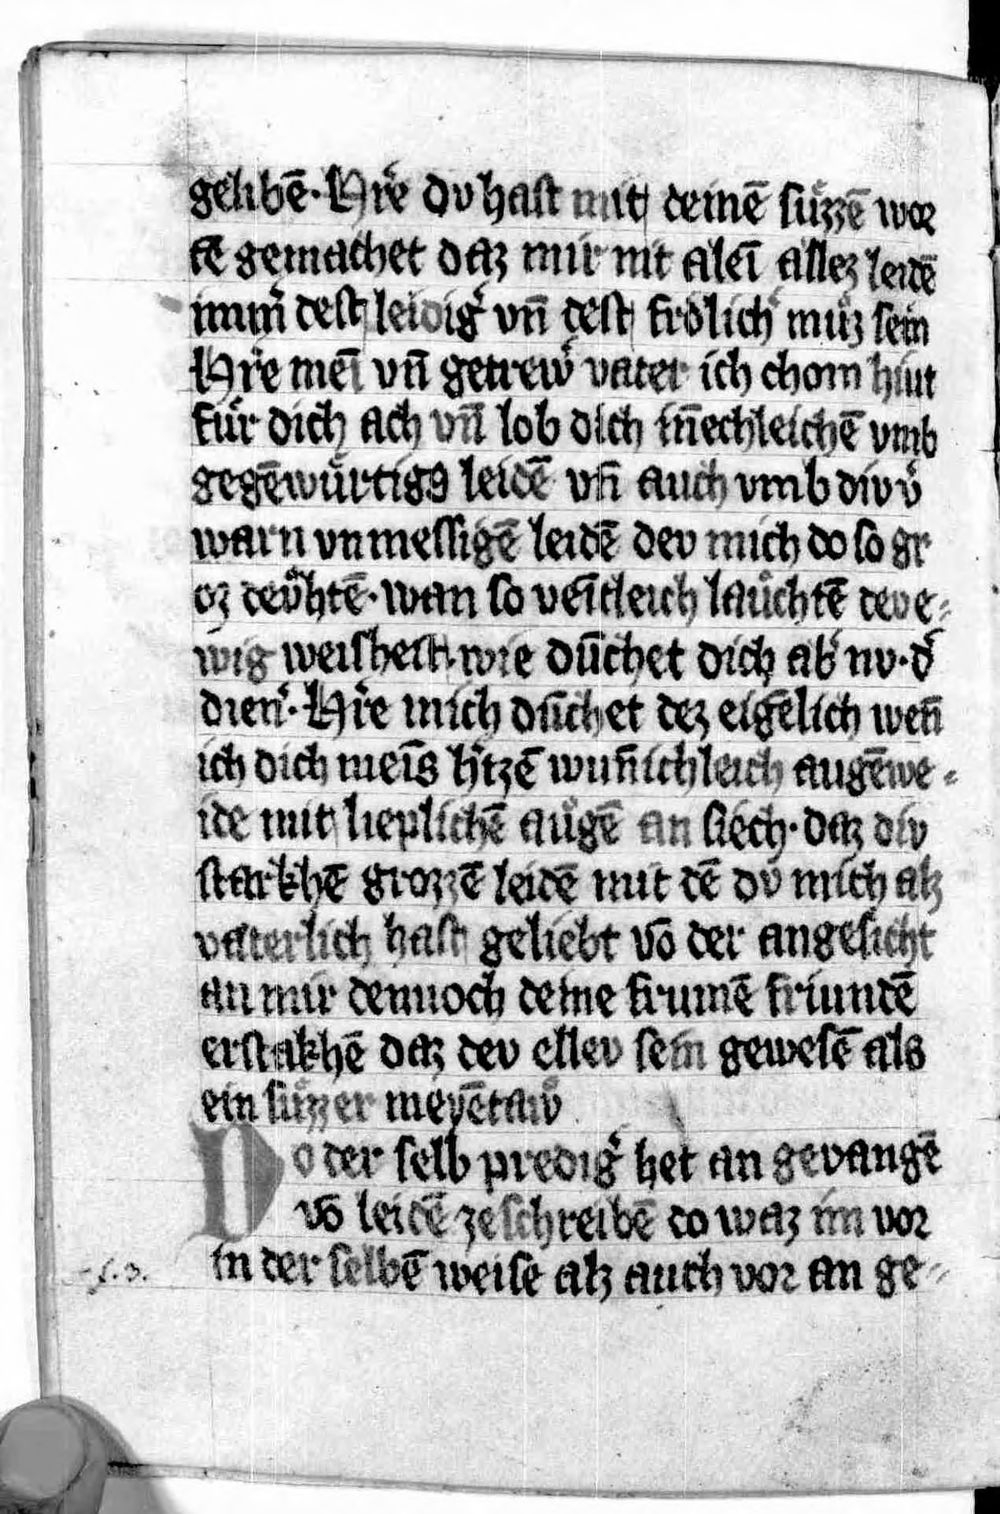 gelibē. Hr̄e du hast mit deinē suͤzzē wor
tē gemachet daz mir nit aleī allez leidē
im̄ dest leidig̉ vn̄ dest froͤlich̉ muͤz sein
Hr̄e meī vn̄ getrew̉ vater ich chom hiut
fuͤr dich ach vn̄ lob dich in̄echleichē vmb
gegēwuͤrtigꝯ leidē vn̄ auch vmb div v̉
warn vnmessigē leidē dev mich do so gr
oz deuͦhtē. wan so veītleich lauͤchtē dev e⸗
wig weisheit. wie duͤchet dich ab̉ nv. d̉
dien̉. Hr̄e mich duͤchet dez eigēlich wen̄
ich dich meīs h̉tzē wun̄ichleich augēwe⸗
ide mit lieplichē auͤgē an siech. daz div
starkhē grozzē leidē mit dē dv mich alz
vaterlich hast geliebt vō der angesicht
an mir dennoch deine frumē friundē
erstakhē daz dev ellev sein gewesē als
ein suͤzzer meyētaw
Do der selb predig̉ het an gevangē
vō leidē zeschreibē do waz im vor
in der selbē weise alz auch vor an ge⸗